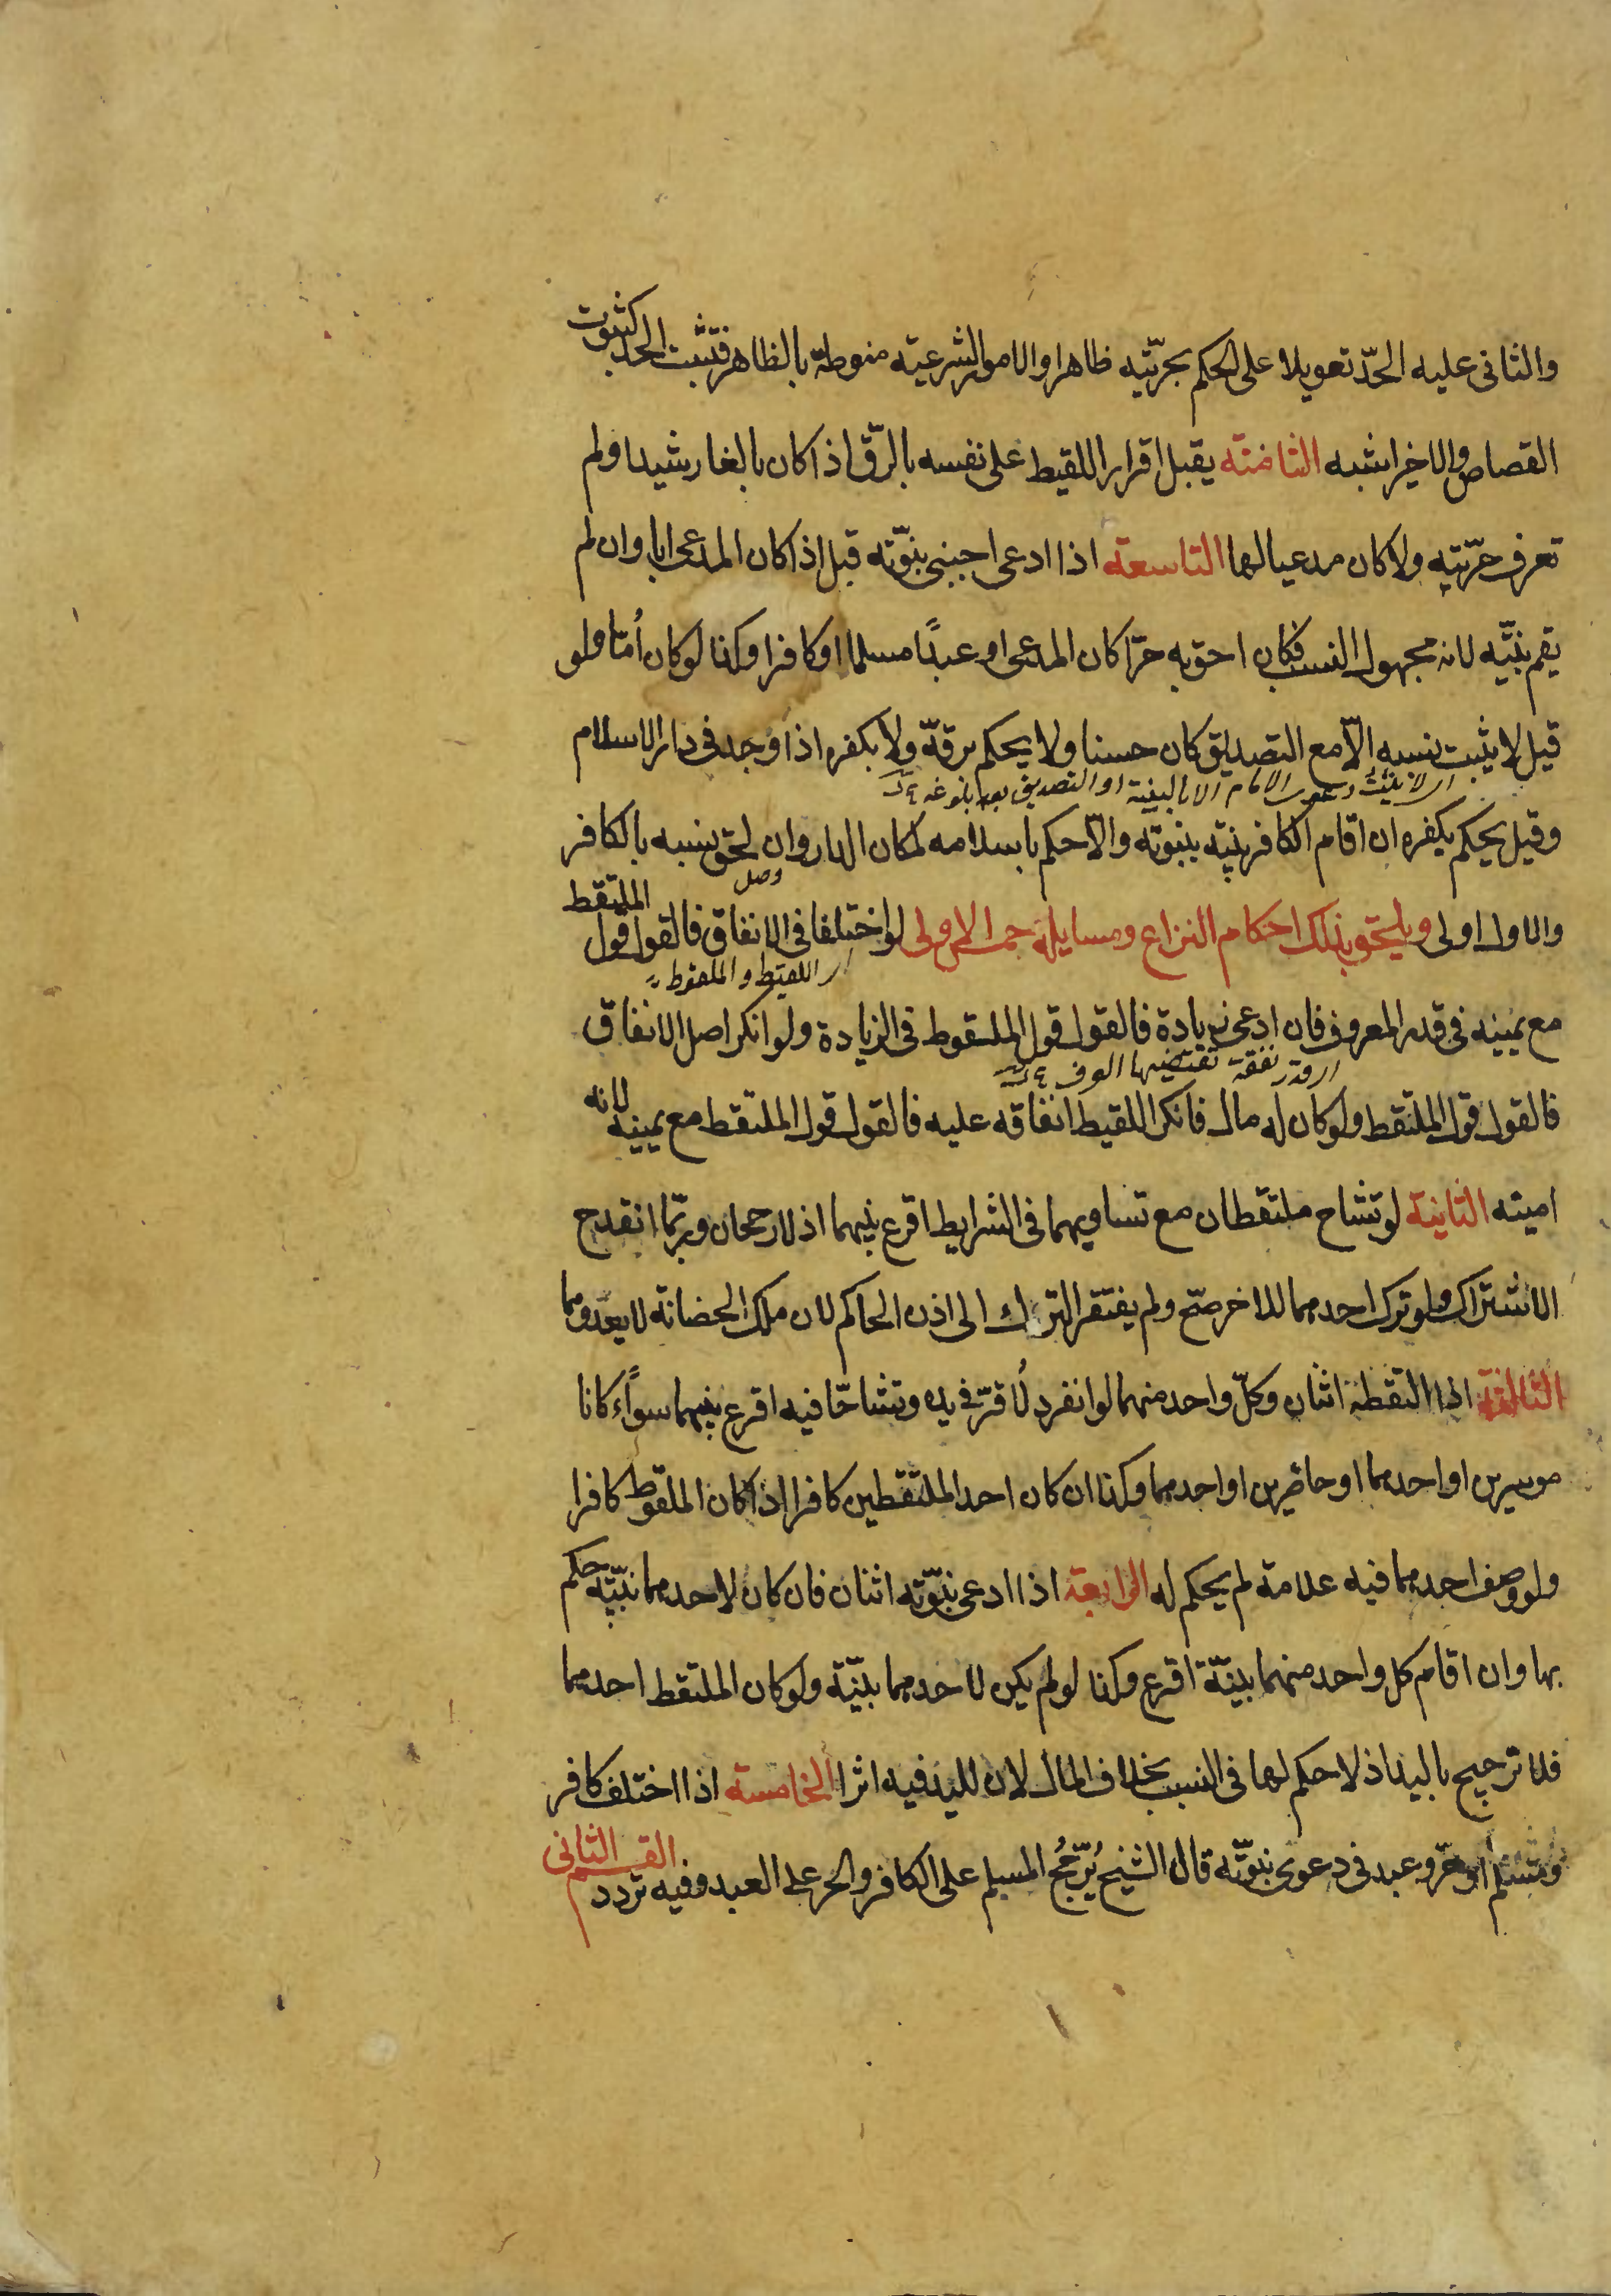 والثانى عليه الحدّ تعويلا على الحكم بحرّيّته ظاهرا والامور الشرعيّه منوطة بالظاهر فتثبت الحد كثبوت
القصاص والاخير اشبه الثامنة يقبل اقرار اللقيط على نفسه بالرّق اذا كان بالغا رشيدا ولم
تعرف حرّيته ولا كان مدعيا لها التاسعة اذا ادعى اجنبى بنوّته قبل اذا كان المدعى ابا وان لم
يقم بيّنه لانه مجهول النسب فكان احق به حرّا كان المدعى او عبدًا مسلما او كافرا وكذا لو كان أمّا ولو
قيل لا يثبت نسبه الّا مع التصديق كان حسنا ولا يحكم برقّه ولا بكفره اذا وجد فى دار الاسلام
اى لا يثبت دعوى الامام الا بالبينة او التصديق بعد بلوغه
وقيل يحكم بكفره ان اقام الكافر بينه ببنوته والّا حكم باسلامه لمكان الدار وان لحق نسبه بالكافر
والاول اولى ويلتحق بذلك احكام النزاع ومسايله خمس الاولى لو اختلفا فى الانفاق فالقول قول الملتقط
وصل
اى اللقيط والملقوط
مع يمينه فى قدر المعروف فان ادعى زيادة فالقول قول الملقوط فى الزيادة ولو انكر اصل الانفاق
اى قدر نفقة تقتضيها العرف
فالقول قول الملتقط ولو كان له مال فانكر اللقيط انفاقه عليه فالقول قول الملتقط مع يمينه لانه
امينه الثانية لو تشاح ملتقطان مع تساويهما فى الشرايط اقرع بينهما اذ لا رجحان وربّما انقدح
الاشتراك ولو ترك احدهما للاخر صحّ ولم يفتقر الترك الى اذن الحاكم لان ملك الحضانة لا يعدوهما
الثالثة اذا التقطه اثنان وكلّ واحد منهما لو انفرد لأقرّ فى يده وتشاحّا فيه اقرع بينهما سوآء كانا
موسرين او احدهما او حاضرين او احدهما وكذا ان كان احد الملتقطين كافرا اذا كان الملقوط كافرا
ولو وصف احدهما فيه علامة لم يحكم له الرابعة اذا ادعى بنوّته اثنان فان كان لاحدهما بيّنة حكم
بها وان اقام كل واحد منهما بينّة اقرع وكذا لو لم يكن لاحدهما بينّة ولو كان الملتقط احدهما
فلا ترجيح باليد اذ لا حكم لها فى النسب بخلاف المال لان لليد فيه اثرا الخامسة اذا اختلف كافر
ومسلم او حرّ وعبد فى دعوى بنوّته قال الشيخ يُرّجحُ المسلم على الكافر والحر على العبد وفيه تردد القسم الثانى